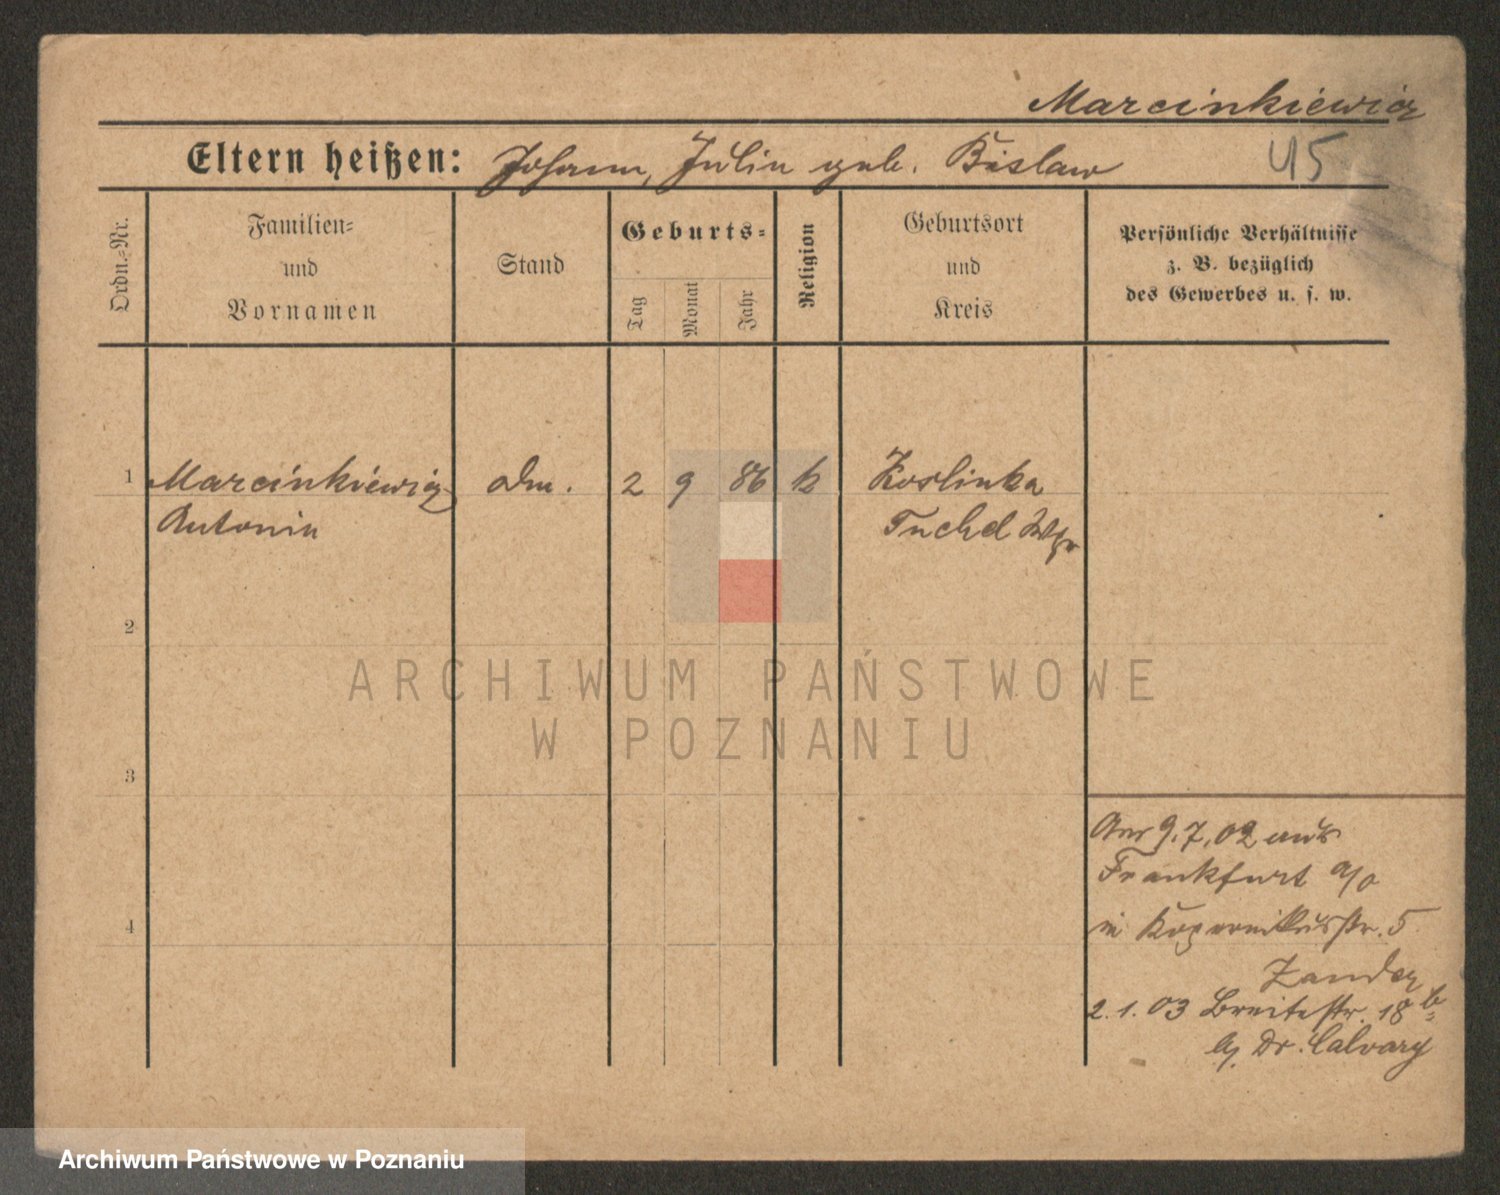 Marcinkiewicz
Eltern heißen: Johann, Julia geb. Bislaw
45
Ordn.-Nr.
Familien-
und
Vornamen
Stand
Geburts-
Tag
Monat
Jahr
Religion
Geburtsort
und
Kreis
Persönliche Verhältnisse
z. B. bezüglich
des Gewerbes u. s. w.
1 Marcinkiewicz 2 9 86 k Koslinka
Antonia Tuchel Wpr
2
3
4
9.7.02 aus
Frankfurt a/o
in Kopernikusstr. 5
Zander
2.1.03 Breitestr. 18b
Dr. Calvary
ARCHIWUM PAŃSTWOWE
W POZNANIU
Archiwum Państwowe w Poznaniu